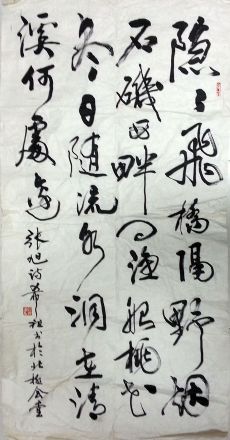 隱々飛橋隔野烟
石磯西畔问漁船桃花
尽日隨流水洞在清
溪何處邊 張旭詩 希祖书於北